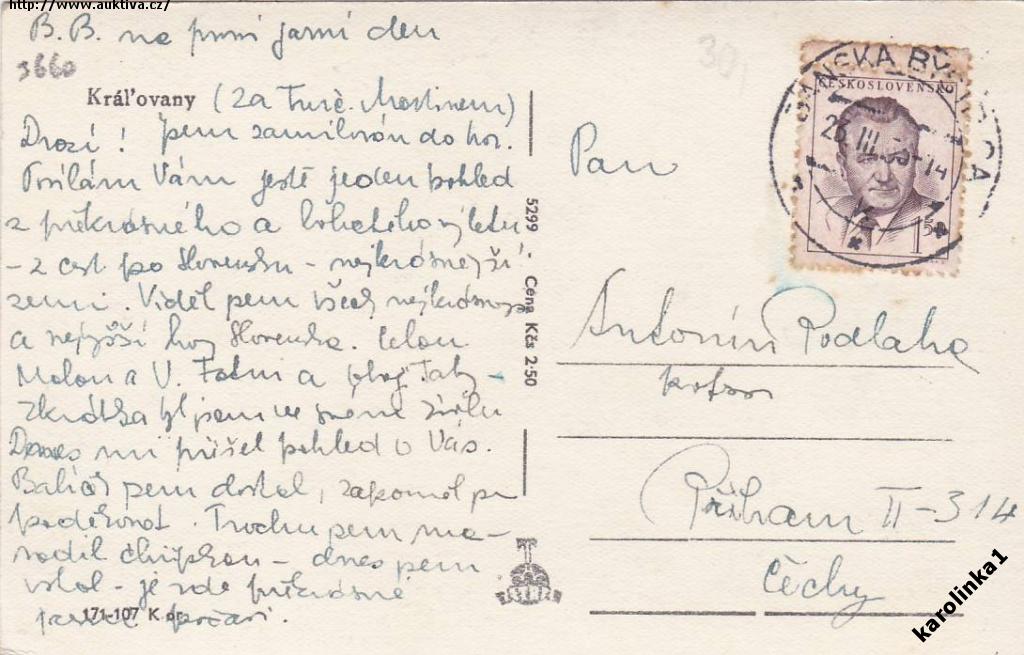 http://www.auktiva.cz/
B.B. na první jarní den
3660
Kráľovany (za Turč. Martinem)
Drazí! jsem zamilován do hor.
Posílám Vám ještě jeden pohled
z překrásného a bohatého výletu
– z cest po Slovensku – nejkrásnější
zemi. Viděl jsem všech nejkrásnější
a nejvyšší hory Slovenska. Celou
Malou a V. Fatru a oboje Tatry –
Zkrátka byl jsem ve svém živlu
Dnes mi přišel pohled o Vás.
Balíček jsem dostal, zapoměl jsem
poděkovat. Trochu jsem ma-
rodil chřipkou – dnes jsem
vstal – je zde překrásné
jarní počasí.
171-107 K
5299 Cena Kčs 2·50
ČESKOSLOVENSKO
BYSTRICA
III
14
1.50
Pan
Antonín Podlaha
Příbram II – 314
Čechy
karolinka1